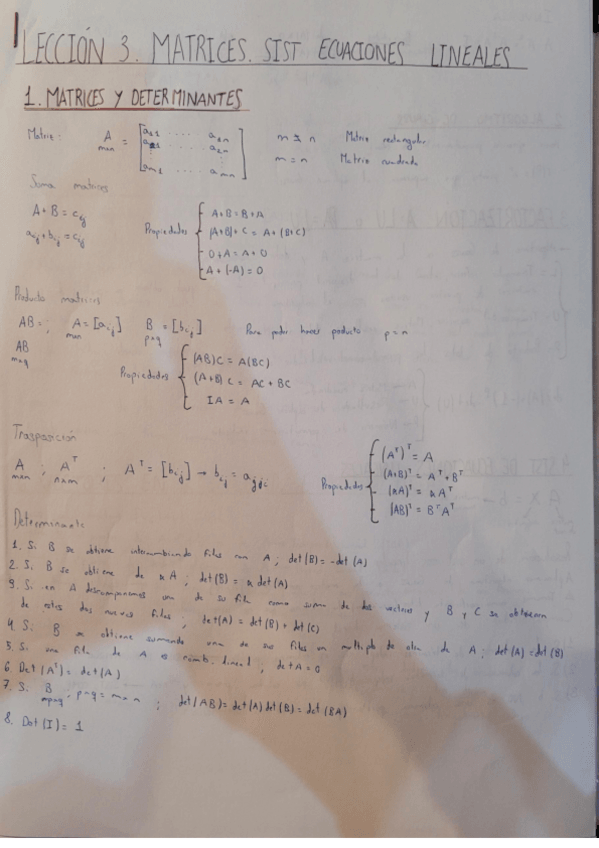 LECCIÓN 3. MATRICES. SIST ECUACIONES LINEALES
1. MATRICES Y DETERMINANTES
Matriz: A = [a11 .... a1n m ≷ n Matriz rectangular
mxn a21 .... a2n m = n Matriz cuadrada
am1 .... amn]
Suma matrices
A+B = cij
aij + bij = cij
Propiedades { A+B = B+A
(A+B)+C = A+(B+C)
0+A = A+0
A+(-A) = 0
Producto matrices
AB = ; A = [aij] B = [bij] Para poder hacer producto p = n
mxn pxq
AB
mxq
Propiedades { (AB)C = A(BC)
(A+B)C = AC + BC
IA = A
Trasposición
A ; A^T ; A^T = [bij] → bij = aji
mxn nxm
Propiedades { (A^T)^T = A
(A+B)^T = A^T + B^T
(αA)^T = αA^T
(AB)^T = B^T A^T
Determinante
1. Si B se obtiene intercambiando filas con A ; det(B) = -det(A)
2. Si B se obtiene de αA ; det(B) = α det(A)
3. Si en A descomponemos una de su fila como suma de dos vectores y B y C se obtienen
de estos dos nuevas filas ; det(A) = det(B) + det(C)
4. Si B se obtiene sumando una de sus filas un multiplo de otra de A ; det(A) = det(B)
5. Si una fila de A es comb. lineal ; det A = 0
6. Det(A^T) = det(A)
7. Si B pxq = mxn ; det(AB) = det(A) det(B) = det(BA)
8. Det(I) = 1